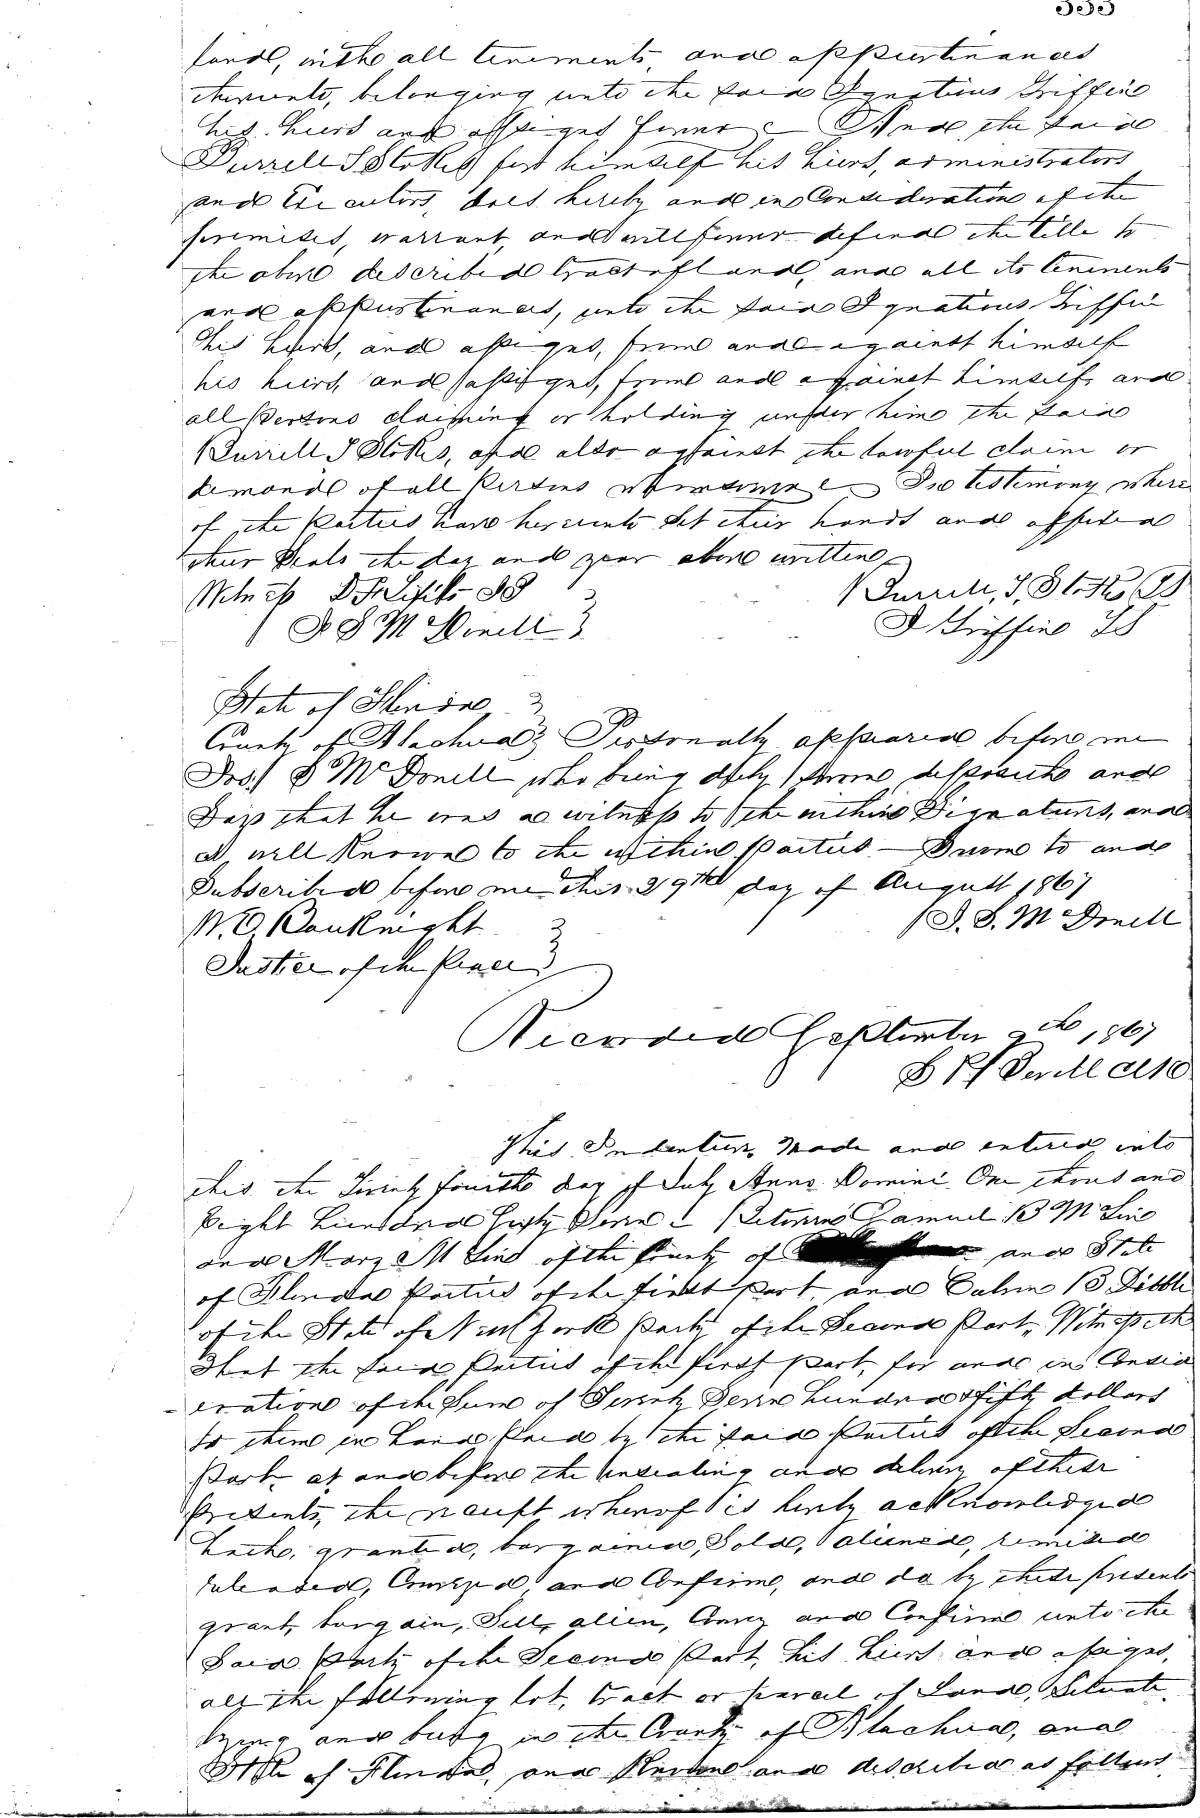 333
land, with all tenements, and appurtinances
thereunto, belonging unto the said Ignatious Griffin
his heirs and assigns forever And the said
Burrell S Stokes for himself his heirs, administrators
and Executors, does hereby and in Consideration of the
premises, warrant, and will forever defend the title to
the above described tract of land, and all its tenements
and appurtinances, unto the said Ignatious Griffin
his heirs, and assigns, from and against himself
his heirs, and assigns, from and against himself, and
all Persons claiming or holding under him the said
Burrell S Stokes, and also against the lawful claim or
demand of all Persons whomsoever In testimony where
of the Parties have hereunto Set their hands and affixed
their Seals the day and year above written
Witness
Burrell, S, Stokes LS
J S McDonell
I Griffin LS
State of Florida
County of Alachua Personally appeared before me
Jos. S McDonell who being duly Sworn, deposeth and
Says that he was a witness to the within Signatures, and
is well Known to the within parties — Sworn to and
Subscribed before me this 29th day of August 1867
W. C. Bauknight
J. S. McDonell
Justice of the Peace
Recorded September th 1867
This Indenture, Made and entered into
this the Twenty fourth day of July Anno Domini One thousand
Eight Hundred Sixty Seven Between Samuel B McLin
and Mary McLin of the County of and State
of Florida Parties of the first Part, and Calvin B Dibble
of the State of New York Party of the Second Part, Witnesseth
That the Said Parties of the first part, for and in Consid
eration of the Sum of Seventy Seven hundred & fifty dollars
to them in hand Paid by the said Parties of the Second
Part, at and before the ensealing and delivery of these
Presents, the receipt whereof is hereby acknowledged
hath, granted, bargained, Sold, aliened, remised
released, Conveyed, and Confirm, and do by these presents
grant, bargain, Sell, alien, Convey and Confirm unto the
Said Party of the Second Part, his heirs and assigns,
all the following lot, tract or parcel of Land, Situate,
lying and being in the County of Alachua, and
State of Florida, and Known and described as follows,